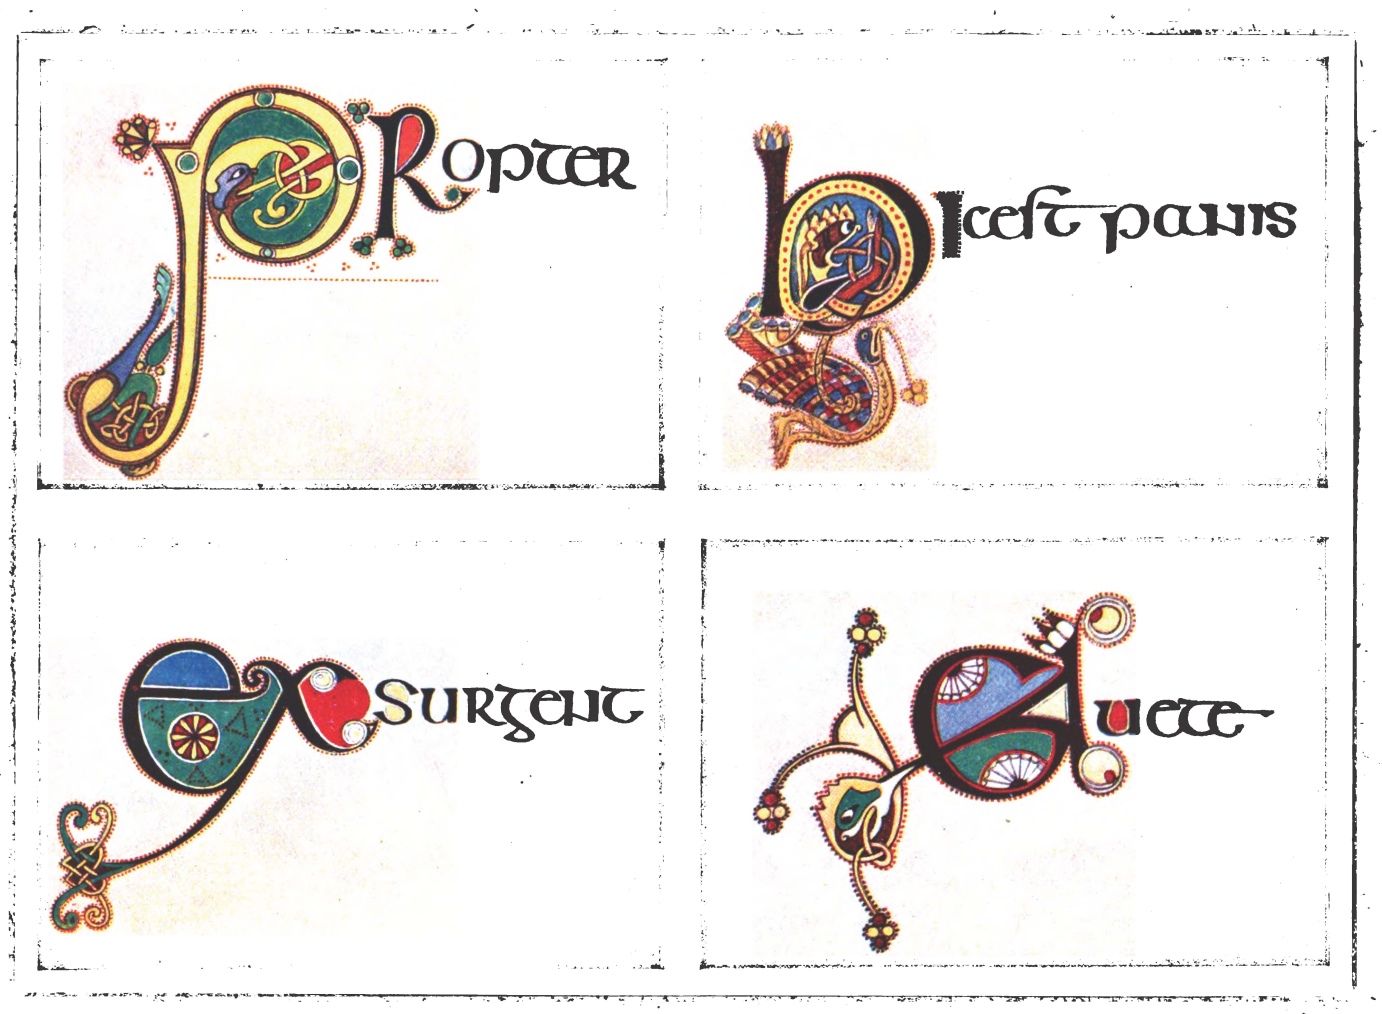 PRopter
hIcest panis
exsurgent
Auete